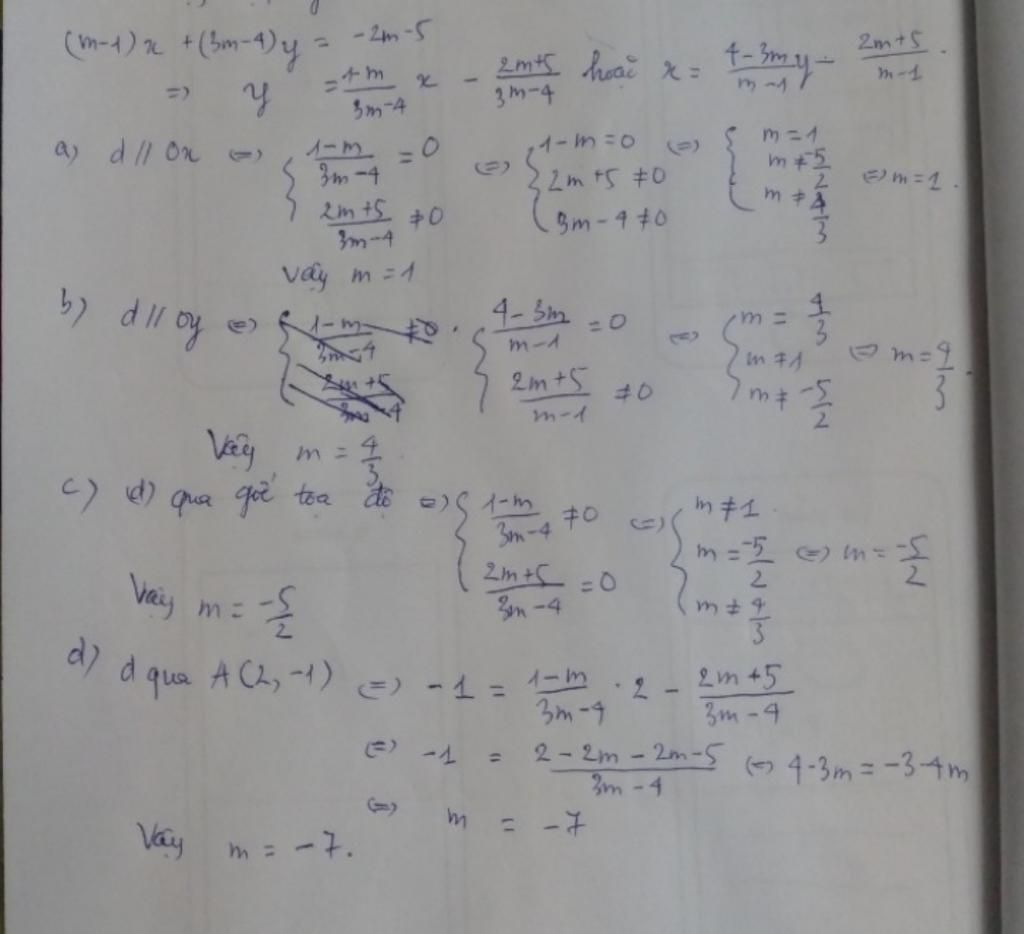 (m-1)x + (3m-4)y = -2m-5
=> y = \frac{1-m}{3m-4} x - \frac{2m+5}{3m-4} hoặc x = \frac{4-3m}{m-1} y - \frac{2m+5}{m-1}.
a) d // Ox <=> { \frac{1-m}{3m-4} = 0 ; \frac{2m+5}{3m-4} ≠ 0 <=> { 1-m = 0 ; 2m+5 ≠ 0 ; 3m-4 ≠ 0 <=> { m = 1 ; m ≠ \frac{-5}{2} ; m ≠ \frac{4}{3} <=> m = 1.
Vậy m = 1
b) d // Oy <=> { \frac{4-3m}{m-1} = 0 ; \frac{2m+5}{m-1} ≠ 0 <=> { m = \frac{4}{3} ; m ≠ 1 ; m ≠ \frac{-5}{2} <=> m = \frac{4}{3}.
Vậy m = \frac{4}{3}.
c) (d) qua gốc tọa độ <=> { \frac{1-m}{3m-4} ≠ 0 ; \frac{2m+5}{3m-4} = 0 <=> { m ≠ 1 ; m = \frac{-5}{2} ; m ≠ \frac{4}{3} <=> m = \frac{-5}{2}
Vậy m = \frac{-5}{2}
d) d qua A(2,-1) <=> -1 = \frac{1-m}{3m-4} · 2 - \frac{2m+5}{3m-4}
<=> -1 = \frac{2-2m-2m-5}{3m-4} <=> 4-3m = -3-4m
<=> m = -7
Vậy m = -7.